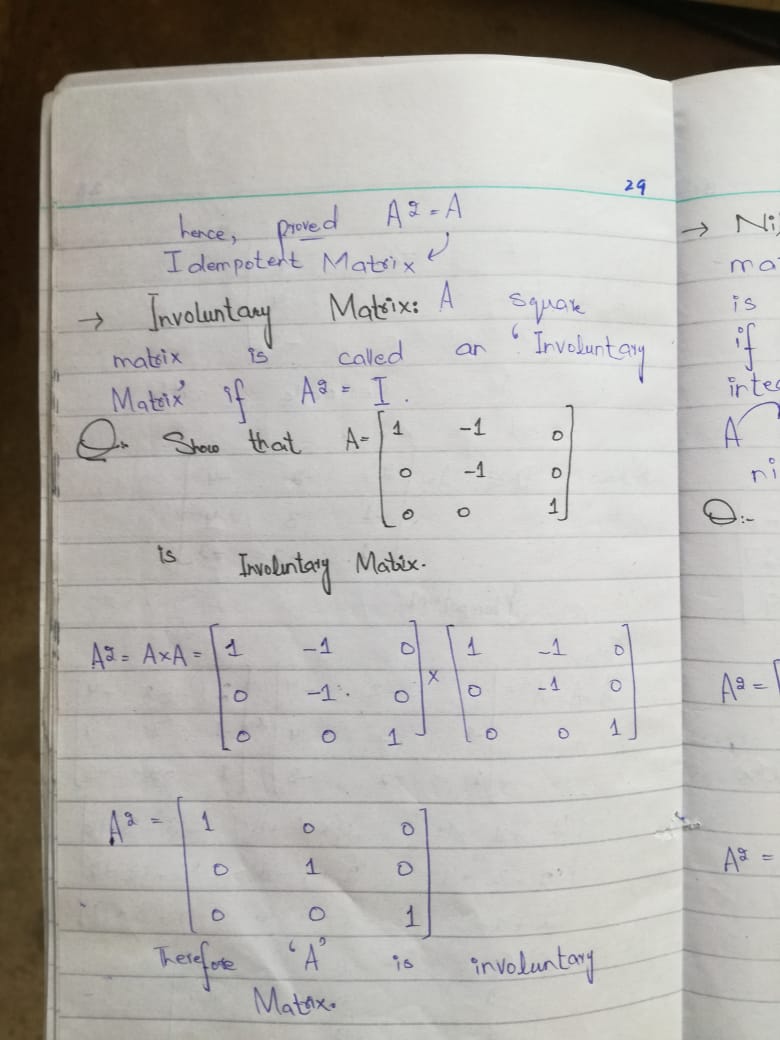 29
hence, proved A² = A
Idempotent Matrix
→ Involuntary Matrix: A square
matrix is called an 'Involuntary
Matrix' if A² = I.
Q:- Show that A= [ 1 -1 0
0 -1 0
0 0 1 ]
is Involuntary Matrix.
A² = A×A = [ 1 -1 0 ] × [ 1 -1 0 ]
0 -1 0 0 -1 0
0 0 1 0 0 1
A² = [ 1 0 0 ]
0 1 0
0 0 1
Therefore 'A' is involuntary
Matrix.
→ Ni
ma
is
if
inte
A
ni
Q:-
A² = [
A² =